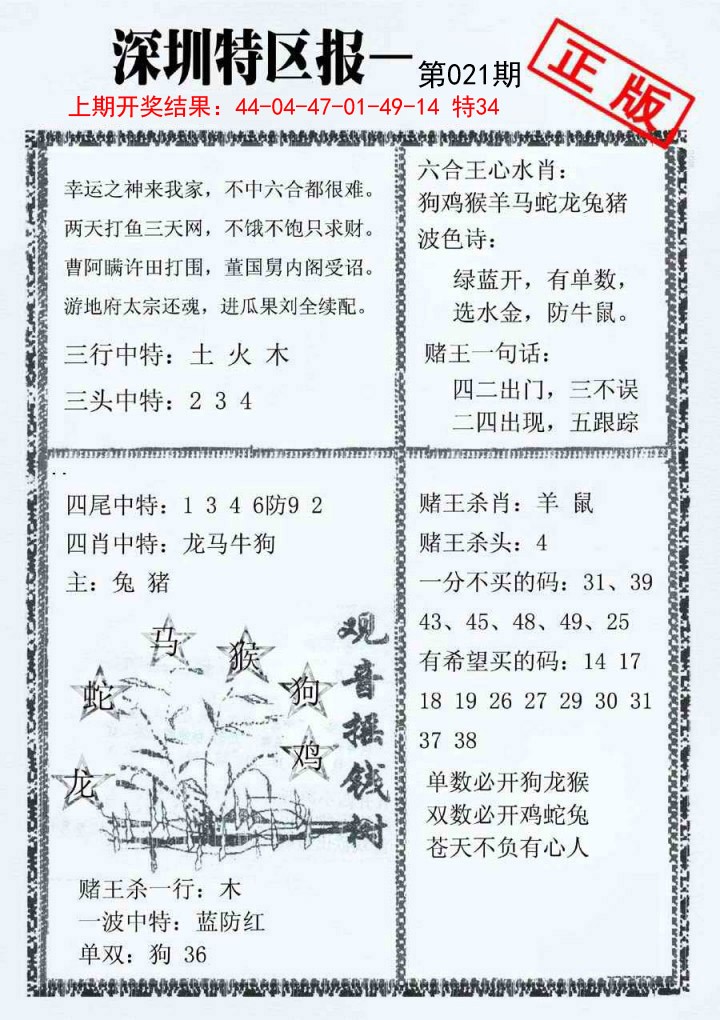 深圳特区报— 第021期
正版
上期开奖结果：44-04-47-01-49-14 特34
幸运之神来我家，不中六合都很难。
两天打鱼三天网，不饿不饱只求财。
曹阿瞒许田打围，董国舅内阁受诏。
游地府太宗还魂，进瓜果刘全续配。
三行中特：土 火 木
三头中特：2 3 4
六合王心水肖：
狗鸡猴羊马蛇龙兔猪
波色诗：
绿蓝开，有单数，
选水金，防牛鼠。
赌王一句话：
四二出门，三不误
二四出现，五跟踪
..
四尾中特：1 3 4 6防9 2
四肖中特：龙马牛狗
主：兔 猪
马
猴
蛇
狗
鸡
龙
观音摇钱树
赌王杀一行：木
一波中特：蓝防红
单双：狗 36
赌王杀肖：羊 鼠
赌王杀头：4
一分不买的码：31、39
43、45、48、49、25
有希望买的码：14 17
18 19 26 27 29 30 31
37 38
单数必开狗龙猴
双数必开鸡蛇兔
苍天不负有心人